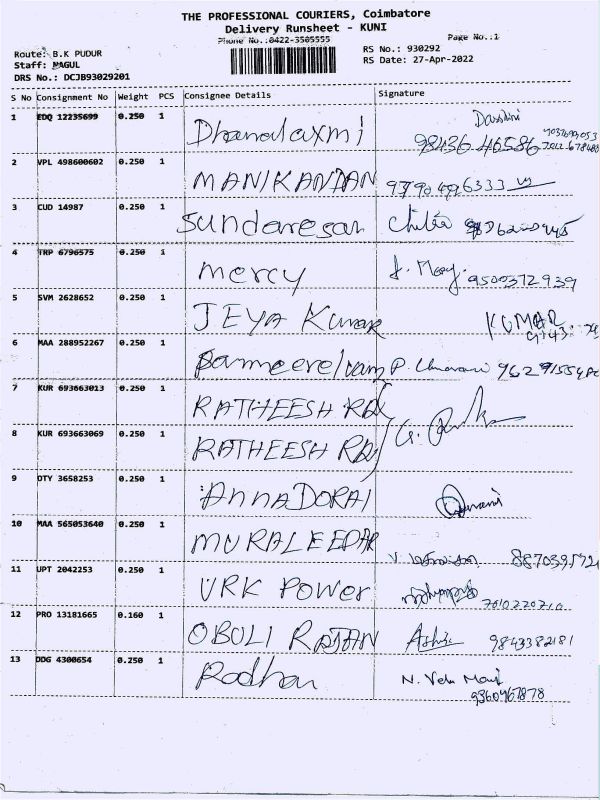 THE PROFESSIONAL COURIERS, Coimbatore
Delivery Runsheet - KUNI
Phone No.:0422-3505555
Page No.:1
Route: B.K PUDUR
RS No.: 930292
Staff: MAGUL
RS Date: 27-Apr-2022
DRS No.: DCJB93029201
S No Consignment No Weight PCS Consignee Details Signature
1 EDQ 12235699 0.250 1 Dhanalaxmi Darshini
98436 46586
2 VPL 498600602 0.250 1 MANIKANDAN 9790496333
3 CUD 14987 0.250 1 Sundaresan
4 TRP 6796575 0.250 1 mercy J. Mercy. 9500372939
5 SVM 2628652 0.250 1 JEYA Kumar KUMAR
6 MAA 288952267 0.250 1 Parmeerelvam P.
7 KUR 693663013 0.250 1 RATHEESH RAJ
8 KUR 693663069 0.250 1 RATHEESH RAJ
9 OTY 3658253 0.250 1 ANNADORAI
10 MAA 565053640 0.250 1 MURALEEDAR
11 UPT 2042253 0.250 1 URK Power
12 PRO 13181665 0.160 1 OBULI RAJAN 9843382181
13 DDG 4300654 0.250 1 Radhan N. Velu Mani
9360967878